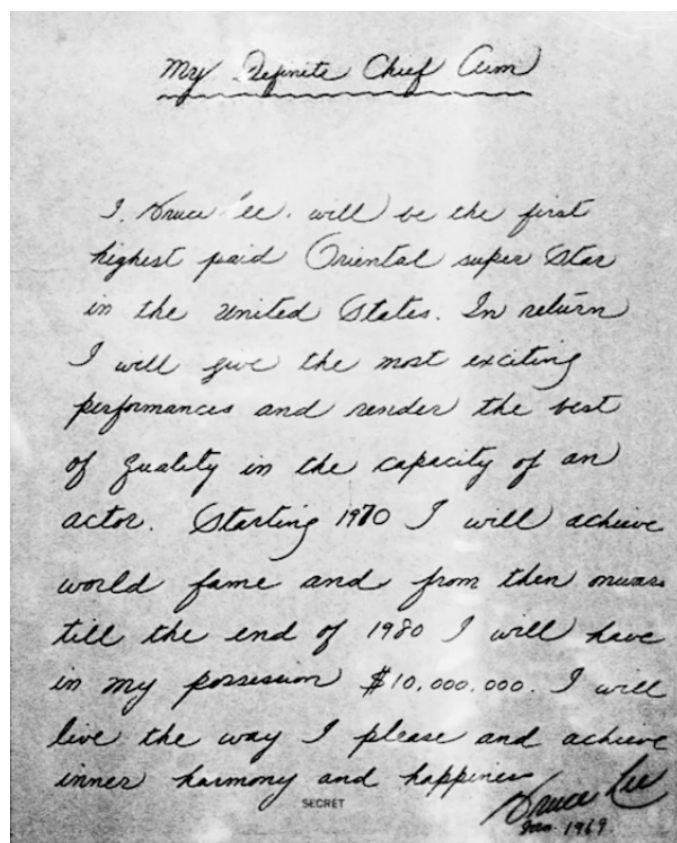 My Definite Chief Aim
I, Bruce Lee, will be the first
highest paid Oriental super Star
in the united States. In return
I will give the most exciting
performances and render the best
of quality in the capacity of an
actor. Starting 1970 I will achieve
world fame and from then onward
till the end of 1980 I will have
in my possession $10,000,000. I will
live the way I please and achieve
inner harmony and happiness
SECRET
Bruce Lee
Jan. 1969